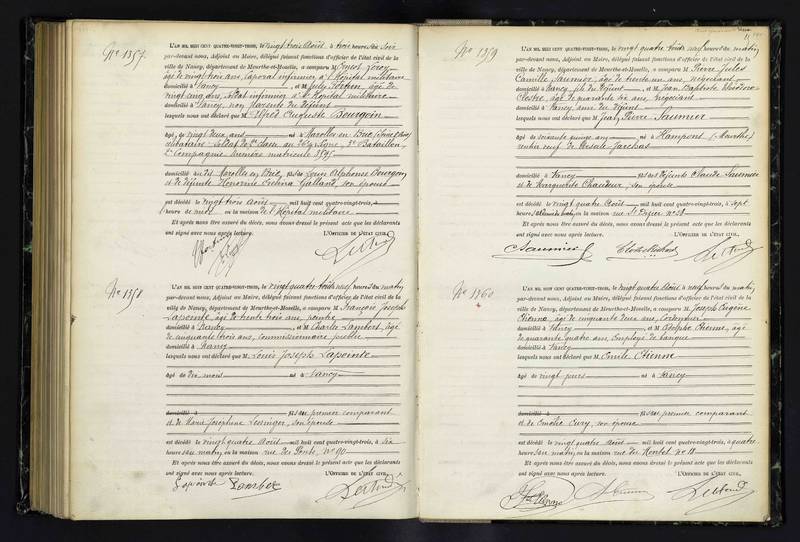 N° 1357
L'AN MIL HUIT CENT QUATRE-VINGT-TROIS, le vingt trois Août à trois heures du soir
par-devant nous, Adjoint au Maire, délégué faisant fonctions d'officier de l'état civil de la
ville de Nancy, département de Meurthe-et-Moselle, a comparu M.
âgé de vingt trois ans, Caporal infirmier à l'hôpital militaire
domicilié à Nancy, et M. July âgé de
vingt ans, Soldat infirmier à l'hôpital militaire
domicilié à Nancy, non parents du défunt
lesquels nous ont déclaré que M. Alfred Auguste Bourgoin
âgé de vingt deux ans né à Marolles en Brie
célibataire, Soldat de 2e classe au de ligne, 3e Bataillon,
2e Compagnie numéro matricule
domicilié à Marolles en Brie, fils de Louis Alphonse Bourgoin
et de défunte Honorine Galland, son épouse
est décédé le vingt trois Août mil huit cent quatre-vingt-trois, à
heure en la maison de l'hôpital militaire
Et après nous être assuré du décès, nous avons dressé le présent acte que les déclarants
ont signé avec nous après lecture. L'OFFICIER DE L'ÉTAT CIVIL,
N° 1358
L'AN MIL HUIT CENT QUATRE-VINGT-TROIS, le vingt quatre Août à neuf heures du matin
par-devant nous, Adjoint au Maire, délégué faisant fonctions d'officier de l'état civil de la
ville de Nancy, département de Meurthe-et-Moselle, a comparu M. François Joseph
Lapointe, âgé de trente trois ans, peintre
domicilié à Nancy, et M. Charles Lambert, âgé
de cinquante trois ans, Commissionnaire public
domicilié à Nancy
lesquels nous ont déclaré que M. Louis Joseph Lapointe
âgé de dix mois né à Nancy
domicilié à fils du premier comparant
et de Marie Joséphine son épouse
est décédé le vingt quatre Août mil huit cent quatre-vingt-trois, à six
heures du matin, en la maison rue des Ponts, n° 90
Et après nous être assuré du décès, nous avons dressé le présent acte que les déclarants
ont signé avec nous après lecture. L'OFFICIER DE L'ÉTAT CIVIL,
Lapointe Lambert
N° 1359
L'AN MIL HUIT CENT QUATRE-VINGT-TROIS, le vingt quatre Août à neuf heures du matin
par-devant nous, Adjoint au Maire, délégué faisant fonctions d'officier de l'état civil de la
ville de Nancy, département de Meurthe-et-Moselle, a comparu M. Pierre Jules
Camille Saumier, âgé de trente un ans, négociant
domicilié à Nancy, fils du défunt, et M. Jean Baptiste
âgé de quarante six ans, négociant
domicilié à Nancy, ami du défunt
lesquels nous ont déclaré que M. Jean Pierre Saumier
âgé de soixante quinze ans né à Hampont (Meurthe)
veuf de
domicilié à Nancy fils des défunts Claude Saumier
et de Marguerite Chaudeur, son épouse
est décédé le vingt quatre Août mil huit cent quatre-vingt-trois, à sept
heures en la maison rue St Dizier n° 38
Et après nous être assuré du décès, nous avons dressé le présent acte que les déclarants
ont signé avec nous après lecture. L'OFFICIER DE L'ÉTAT CIVIL,
Saumier
N° 1360
L'AN MIL HUIT CENT QUATRE-VINGT-TROIS, le vingt quatre Août à neuf heures du matin,
par-devant nous, Adjoint au Maire, délégué faisant fonctions d'officier de l'état civil de la
ville de Nancy, département de Meurthe-et-Moselle, a comparu M. Joseph Eugène
Etienne, âgé de cinquante deux ans, Cordonnier
domicilié à Nancy, et M. Adolphe Etienne, âgé
de quarante quatre ans, Employé de banque
domicilié à Nancy
lesquels nous ont déclaré que M. Emile Etienne
âgé de vingt jours né à Nancy
domicilié à fils du premier comparant
et de Emélie Cury, son épouse
est décédé le vingt quatre Août mil huit cent quatre-vingt-trois, à quatre
heures du matin, en la maison rue du Montet n° 11
Et après nous être assuré du décès, nous avons dressé le présent acte que les déclarants
ont signé avec nous après lecture. L'OFFICIER DE L'ÉTAT CIVIL,